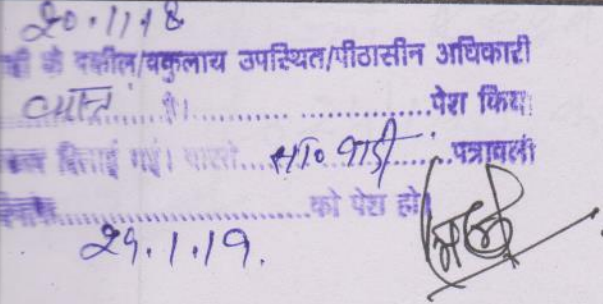 20.11.18
के वकील/वकुलाय उपस्थित/पीठासीन अधिकारी
है। ........................पेश किया
दिलाई गई। वास्ते.... सा० वादी ........पत्रावली
दिनांक..............................को पेश हो।
29.1.19.